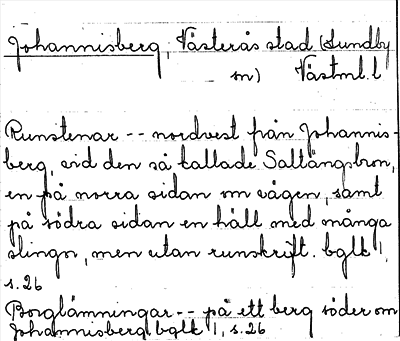 Johannisberg, Västerås stad (Lundby
sn) Västml. l
Runstenar -- nordvest från Johannis-
berg, vid den så kallade Saltängsbron,
en på norra sidan om vägen, samt
på södra sidan en häll med många
slingor, men utan runskrift. bglk 1,
s. 26
Borglämningar -- på ett berg söder om
Johannisberg bglk 1, s. 26